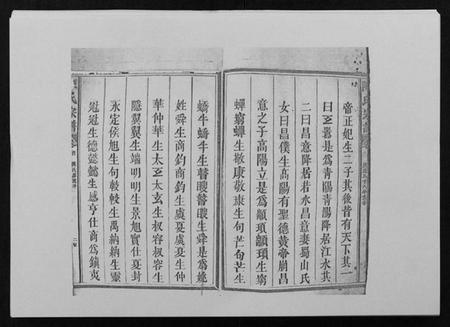 帝正妃生二子其後皆有天下其一
曰玄囂是爲青陽青陽降居江水其
二曰昌意降居若水昌意妻蜀山氏
女曰昌僕生高陽有聖德黃帝崩昌
意之子高陽立是爲顓頊顓頊生窮
蟬窮蟬生敬康敬康生句芒句芒生
蟜牛蟜牛生瞽瞍瞽瞍生舜是爲姚
姓舜生商鈞商鈞生虞夏虞夏生仲
華仲華生太玄太玄生叔容叔容生
隱翼翼生端明明生景旭實仕夏封
永定侯旭生句較較生禹納納生靈
生德懿懿生感亨仕商爲鎮夷
氏宗譜